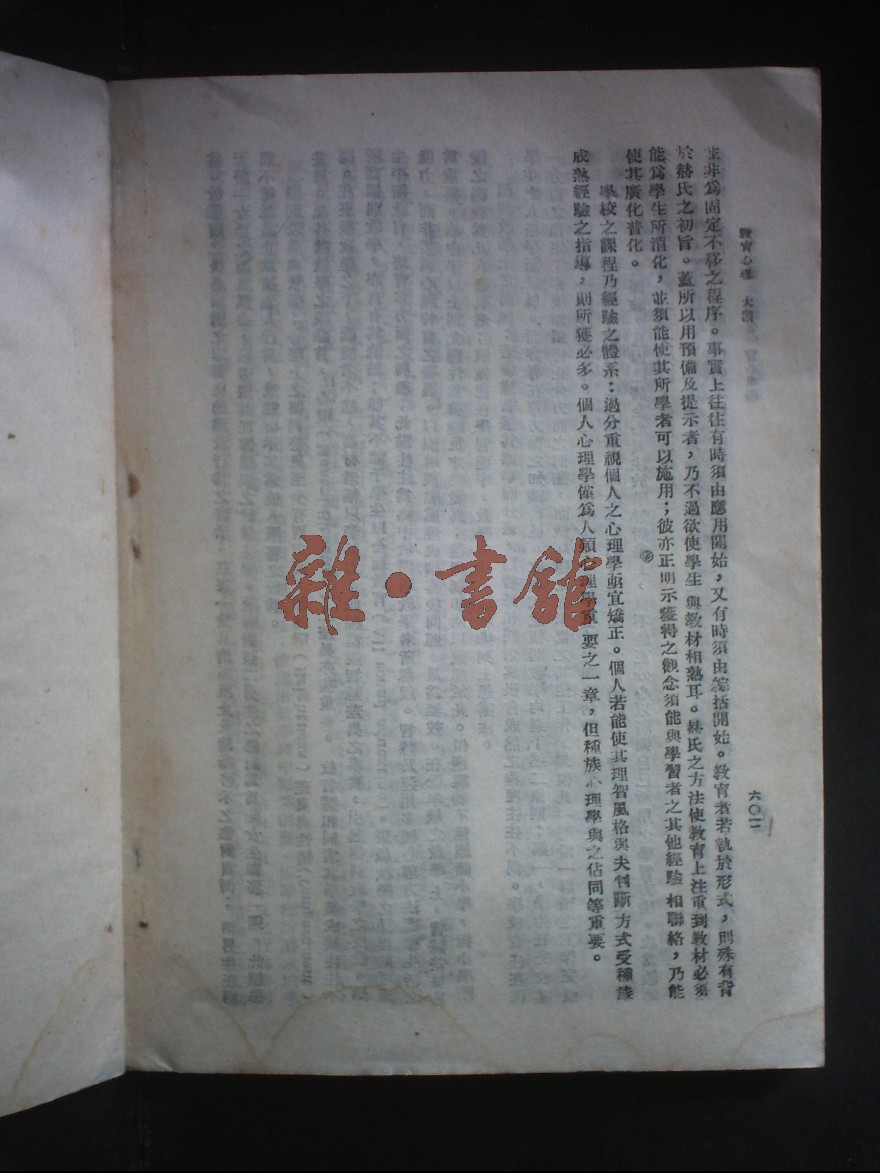 教育心理 大意
六〇二
並非爲固定不移之程序。事實上往往有時須由應用開始，又有時須由綜括開始。教育者若執於形式，則殊有背
於赫氏之初旨。蓋所以用預備及提示者，乃不過欲使學生與教材相熟耳。赫氏之方法使教育上注重到教材必須
能爲學生所消化，並須能使其所學者可以施用；彼亦正明示獲得之觀念須能與學習者之其他經驗相聯絡，乃能
使其廣化普化。
學校之課程乃經驗之體系：過分重視個人之心理學亟宜矯正。個人若能使其理智風格與夫判斷方式受種族
成熟經驗之指導，則所獲必多。個人心理學僅爲人類心理學重要之一章，但種族心理學與之佔同等重要。
雜·書館